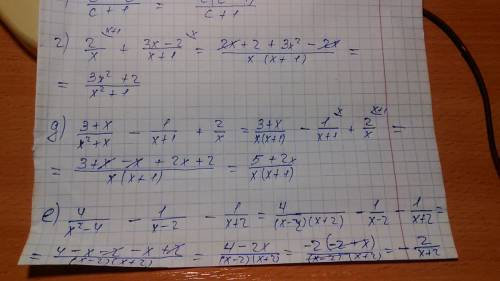 c + 1 = c + 1
2) 2/x^(x+1) + (3x-2)/(x+1)^x = (2x + 2 + 3x² - 2x)/(x (x+1)) =
= (3x² + 2)/(x² + 1)
д) (3+x)/(x²+x) - 1/(x+1) + 2/x = (3+x)/(x(x+1)) - 1/(x+1)^x + 2/x^(x+1) =
= (3+x - x + 2x + 2)/(x (x+1)) = (5 + 2x)/(x (x+1))
е) 4/(x²-4) - 1/(x-2) - 1/(x+2) = 4/((x-2)(x+2)) - 1/(x-2) - 1/(x+2) =
= (4 - x - 2 - x + 2)/((x-2)(x+2)) = (4 - 2x)/((x-2)(x+2)) = -2(-2+x)/((x-2)(x+2)) = - 2/(x+2)